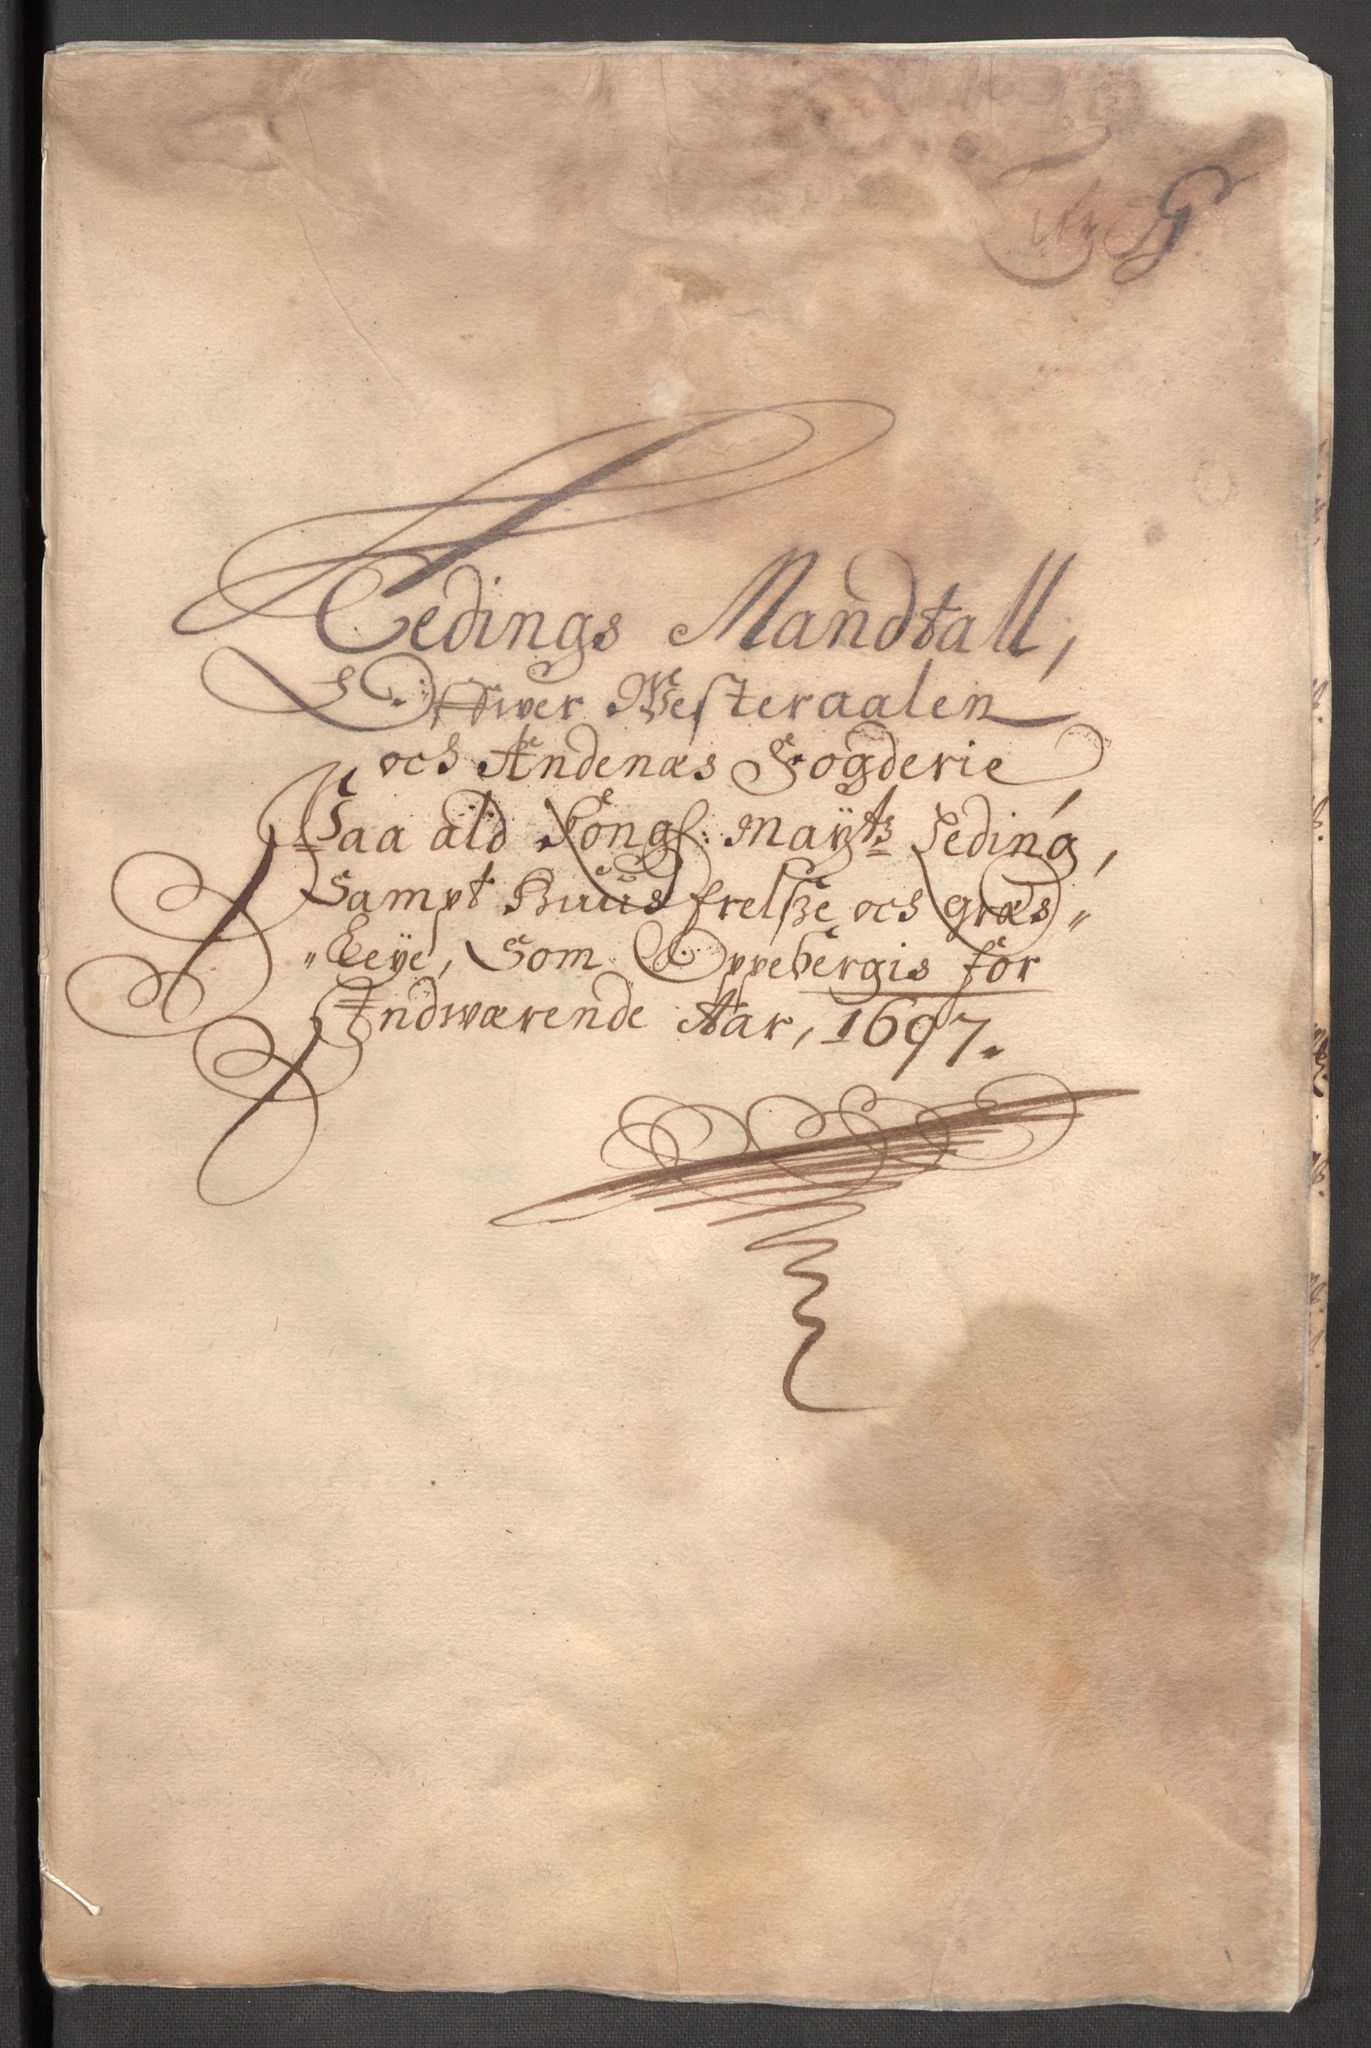 G
Ledings Mandtall,
Offwer Westeraalen
och Andenæs Fogderie
Paa ald Kongl: Maÿtz Leding,
Sampt Buus frelsze och græs„
„Leye, Som Oppebergis for
Indwærende Aar, 1697.